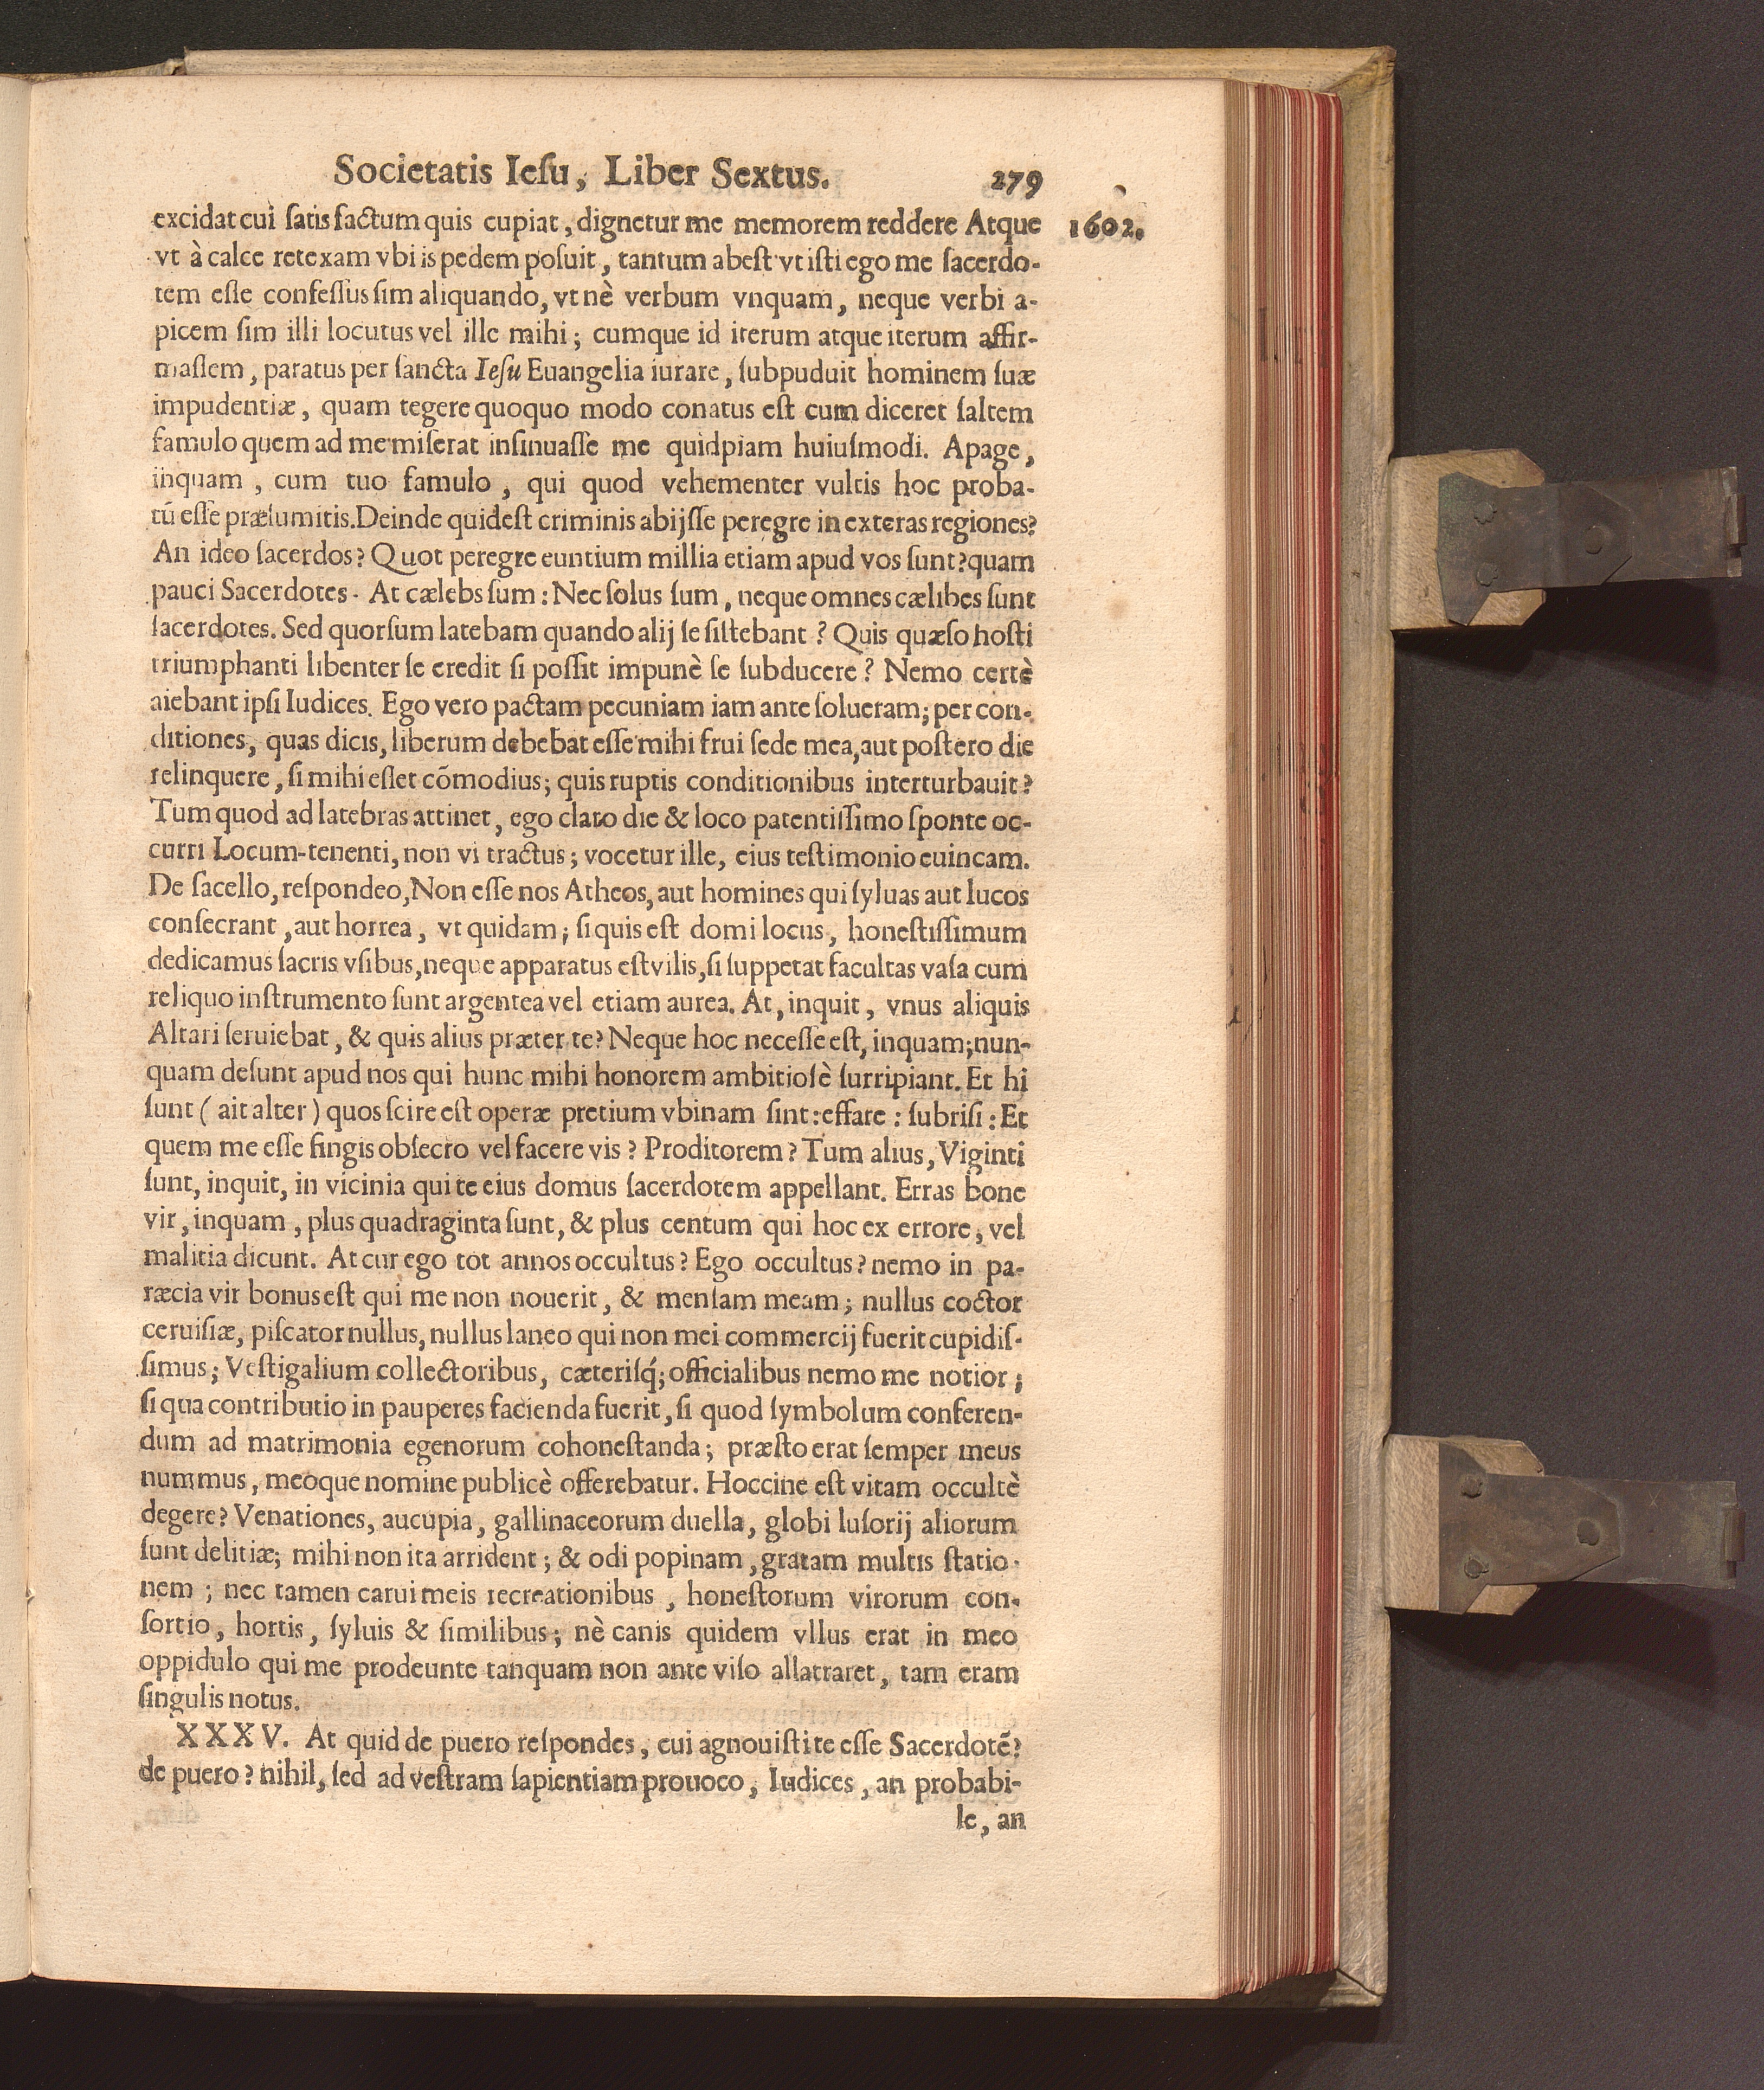 Societatis Ieſu, Liber Sextus. 279
excidat cui ſatis factum quis cupiat, dignetur me memorem reddere Atque 1602.
vt à calce retexam vbi is pedem poſuit, tantum abeſt vt iſti ego me ſacerdo-
tem eſſe confeſſus ſim aliquando, vt nè verbum vnquam, neque verbi a-
picem ſim illi locutus vel ille mihi; cumque id iterum atque iterum affir-
maſſem, paratus per ſancta Ieſu Euangelia iurare, ſubpuduit hominem ſuæ
impudentiæ, quam tegere quoquo modo conatus eſt cum diceret ſaltem
famulo quem ad me miſerat inſinuaſſe me quidpiam huiuſmodi. Apage,
inquam, cum tuo famulo, qui quod vehementer vultis hoc proba-
tū eſſe præſumitis. Deinde quid eſt criminis abijſſe peregre in exteras regiones?
An ideo ſacerdos? Quot peregre euntium millia etiam apud vos ſunt? quam
pauci Sacerdotes. At cælebs ſum: Nec ſolus ſum, neque omnes cælibes ſunt
ſacerdotes. Sed quorſum latebam quando alij ſe ſiſtebant? Quis quæſo hoſti
triumphanti libenter ſe credit ſi poſſit impunè ſe ſubducere? Nemo certè
aiebant ipſi Iudices. Ego vero pactam pecuniam iam ante ſolueram; per con-
ditiones, quas dicis, liberum debebat eſſe mihi frui ſede mea, aut poſtero die
relinquere, ſi mihi eſſet cōmodius; quis ruptis conditionibus interturbauit?
Tum quod ad latebras attinet, ego claro die & loco patentiſſimo ſponte oc-
curri Locum-tenenti, non vi tractus; vocetur ille, eius teſtimonio euincam.
De ſacello, reſpondeo, Non eſſe nos Atheos, aut homines qui ſyluas aut lucos
conſecrant, aut horrea, vt quidam; ſi quis eſt domi locus, honeſtiſſimum
dedicamus ſacris vſibus, neque apparatus eſt vilis, ſi ſuppetat facultas vaſa cum
reliquo inſtrumento ſunt argentea vel etiam aurea. At, inquit, vnus aliquis
Altari ſeruiebat, & quis alius præter te? Neque hoc neceſſe eſt, inquam; nun-
quam deſunt apud nos qui hunc mihi honorem ambitioſè ſurripiant. Et hi
ſunt (ait alter) quos ſcire eſt operæ pretium vbinam ſint: effare: ſubriſi: Et
quem me eſſe fingis obſecro vel facere vis? Proditorem? Tum alius, Viginti
ſunt, inquit, in vicinia qui te eius domus ſacerdotem appellant. Erras bone
vir, inquam, plus quadraginta ſunt, & plus centum qui hoc ex errore, vel
malitia dicunt. At cur ego tot annos occultus? Ego occultus? nemo in pa-
ræcia vir bonus eſt qui me non nouerit, & menſam meam; nullus coctor
ceruiſiæ, piſcator nullus, nullus laneo qui non mei commercij fuerit cupidiſ-
ſimus; Veſtigalium collectoribus, cæteriſq́; officialibus nemo me notior;
ſi qua contributio in pauperes facienda fuerit, ſi quod ſymbolum conferen-
dum ad matrimonia egenorum cohoneſtanda; præſto erat ſemper meus
nummus, meoque nomine publicè offerebatur. Hoccine eſt vitam occultè
degere? Venationes, aucupia, gallinaceorum duella, globi luſorij aliorum
ſunt delitiæ; mihi non ita arrident; & odi popinam, gratam multis statio-
nem; nec tamen carui meis recreationibus, honeſtorum virorum con-
ſortio, hortis, ſyluis & ſimilibus; nè canis quidem vllus erat in meo
oppidulo qui me prodeunte tanquam non ante viſo allatraret, tam eram
ſingulis notus.
XXXV. At quid de puero reſpondes, cui agnouiſti te eſſe Sacerdotē?
de puero? nihil, ſed ad veſtram ſapientiam prouoco, Iudices, an probabi-
le, an